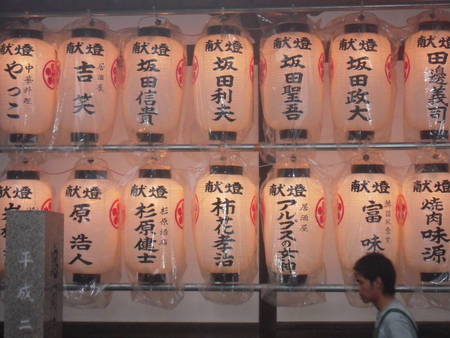 献燈
中華料理
やっこ
献燈
居酒屋
吉笑
献燈
坂田信貴
献燈
坂田利英
献燈
坂田聖吾
献燈
坂田政大
献燈
田邊義司
献燈
献燈
原浩人
献燈
杉原酒店
杉原健士
献燈
柿花孝治
献燈
居酒屋
アルプスの女神
献燈
富味
献燈
焼肉
味源
平成二